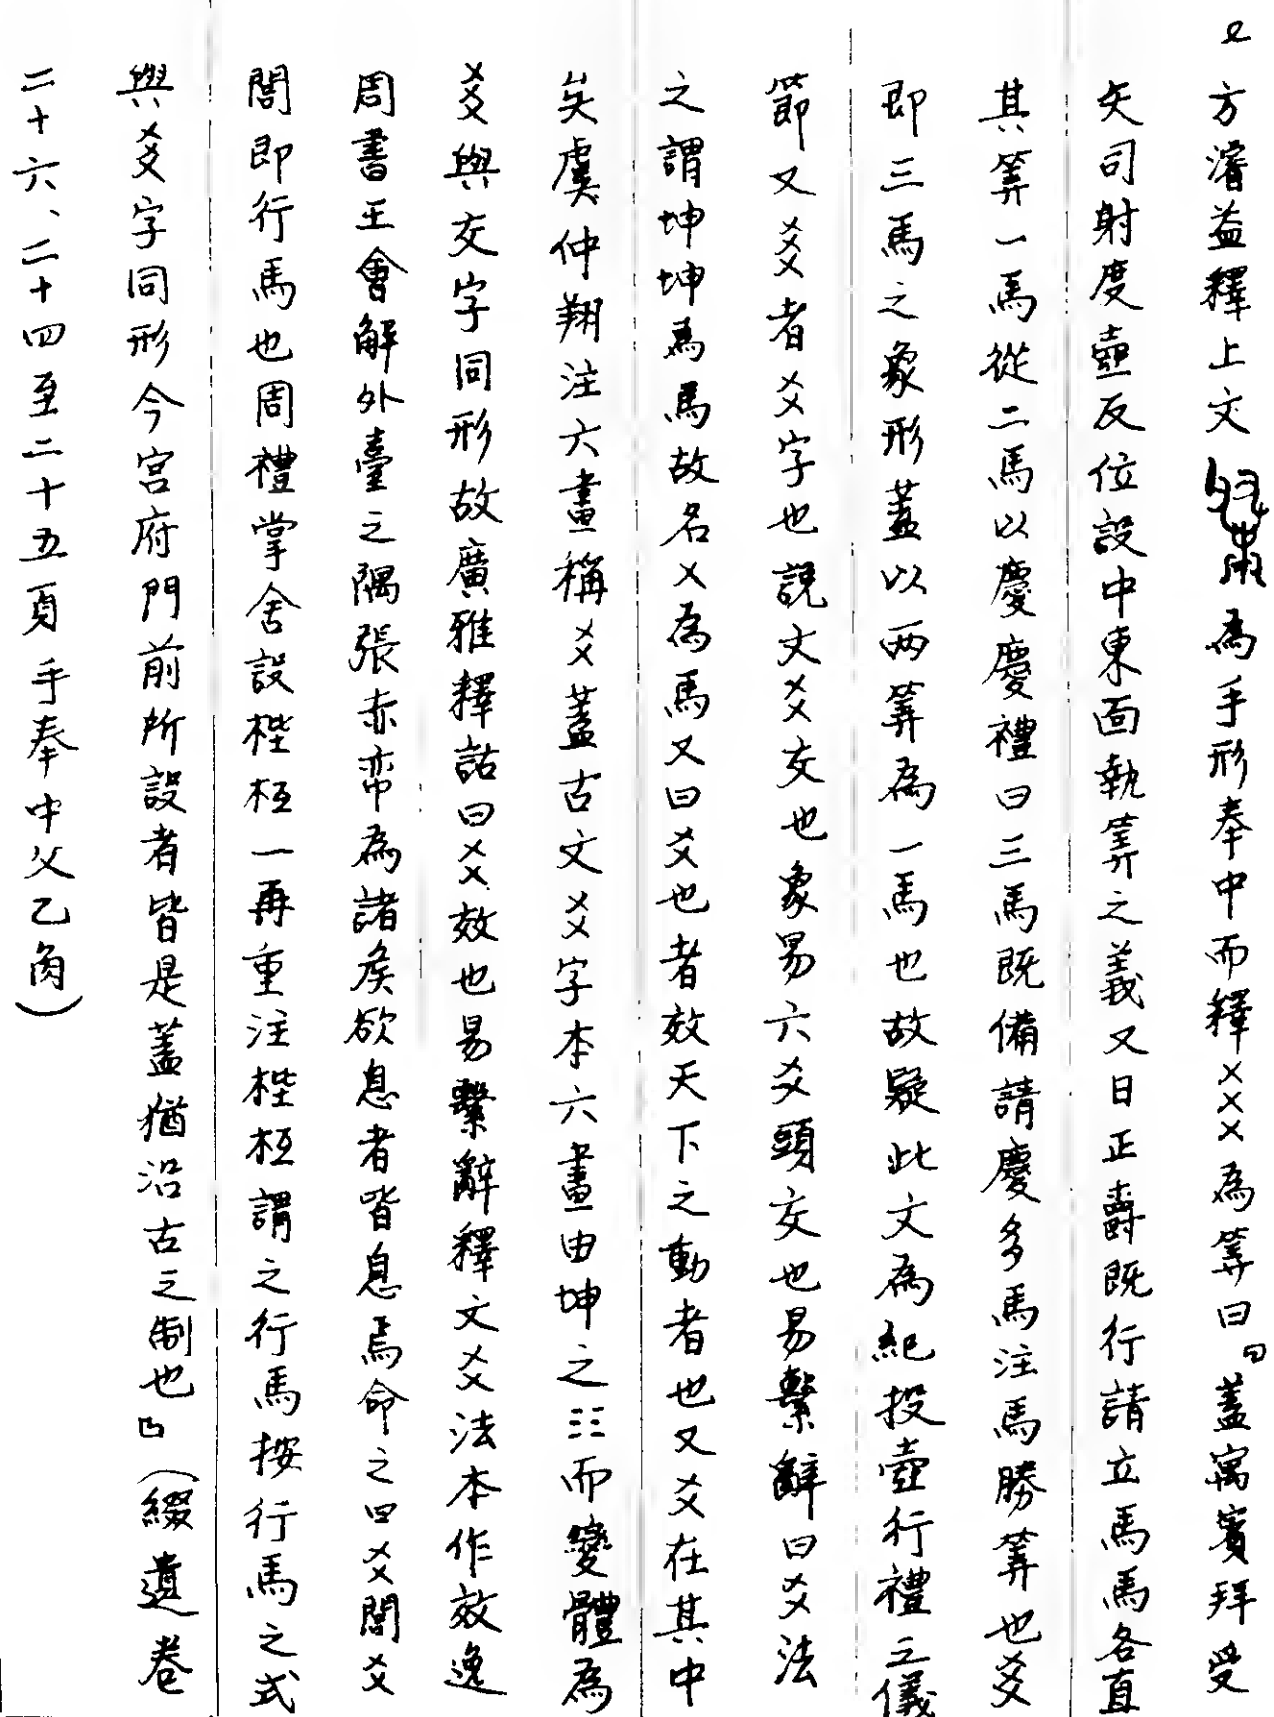 方濬益釋上文為手形奉中而釋×××為筭曰「蓋寓賓拜受
矢司射度壺反位設中東面執筭之義又曰正爵既行請立馬馬各直
其筭一馬從二馬以慶慶禮曰三馬既備請慶多馬注馬勝筭也爻
即三馬之象形蓋以兩筭為一馬也故疑此文為紀投壺行禮之儀
節又爻者爻字也說文爻交也象易六爻頭交也易繫辭曰爻法
之謂坤坤為馬故名乂為馬又曰爻也者效天下之動者也又爻在其中
矣虞仲翔注六畫稱爻蓋古文爻字本六畫由坤之☷而變體為
爻與交字同形故廣雅釋詁曰爻效也易繫辭釋文爻法本作效逸
周書王會解外臺之隅張赤帟為諸矦欲息者皆息焉命之曰爻閭爻
閭即行馬也周禮掌舍設梐枑一再重注梐枑謂之行馬按行馬之式
與爻字同形今宮府門前所設者皆是蓋猶沿古之制也」（綴遺卷
二十六、二十四至二十五頁手奉中父乙角）